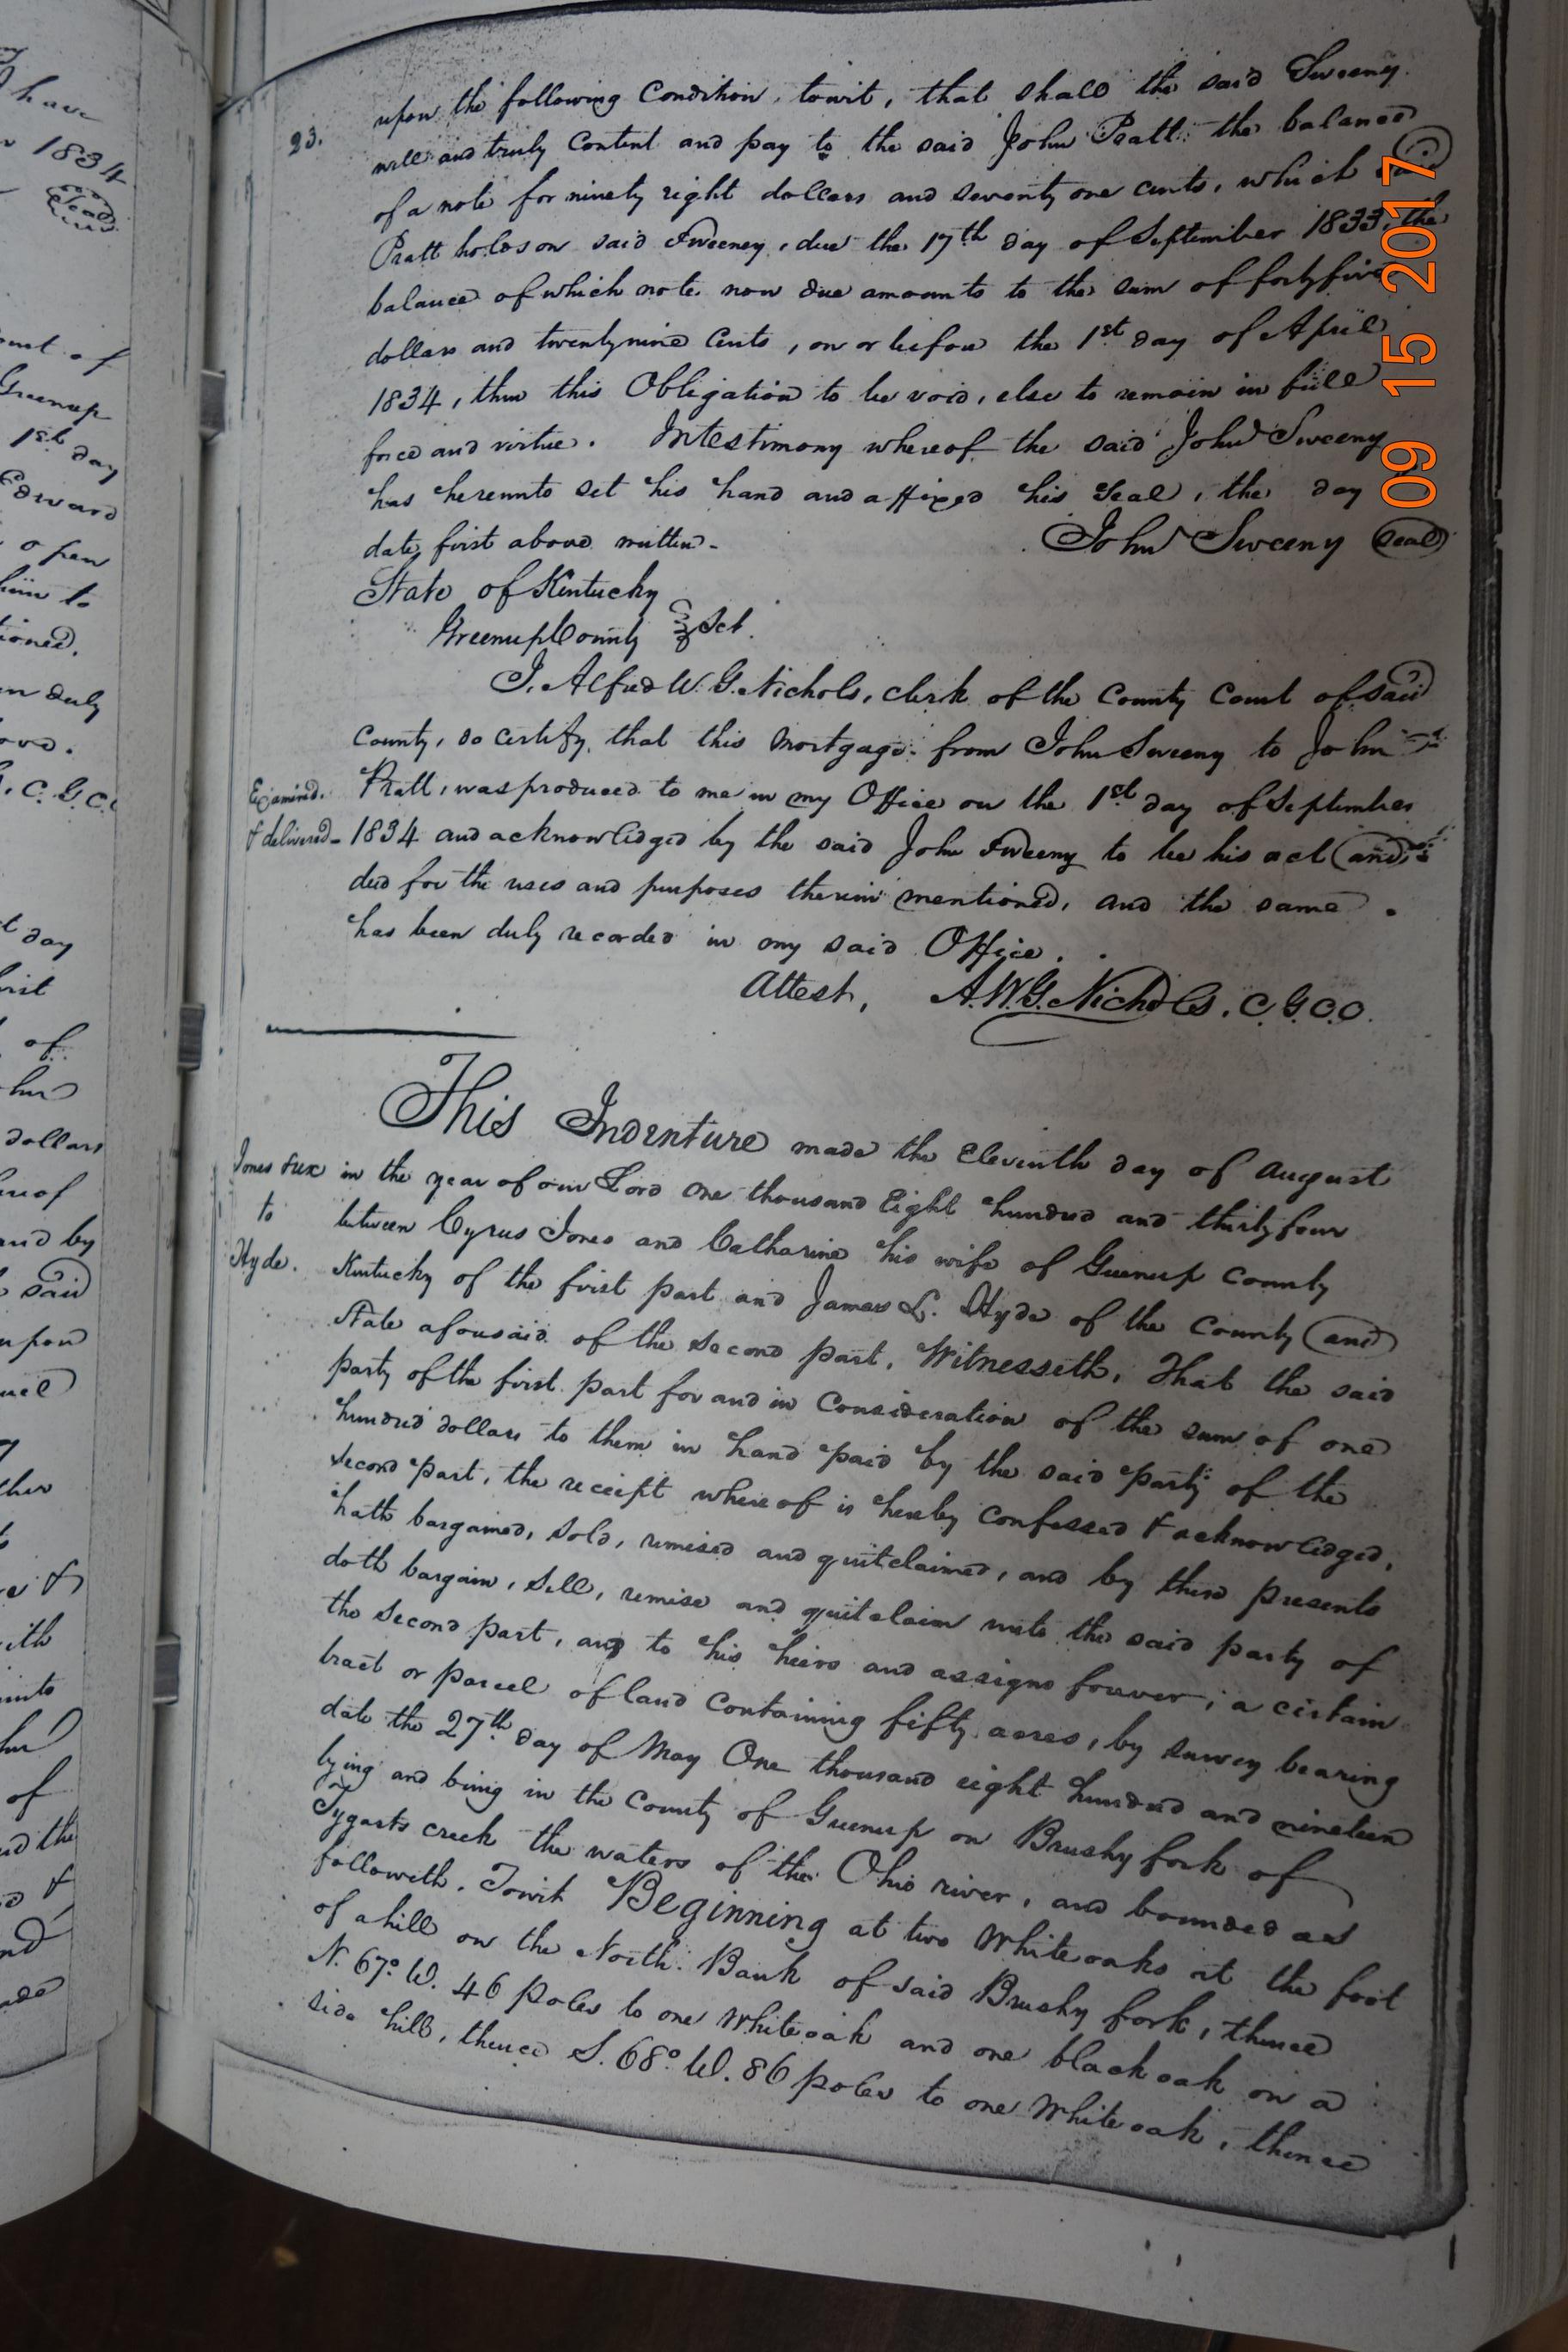 I have
1834
Seal
of
Greenup
1st day
Edward
open
him to
tioned.
duly
C. G. C.
day
of
dollars
and by
said
upon
of
and the
23.
upon the following Condition, towit, that shall the said Sweeny
well and truly Content and pay to the said John Pratt the balance
of a note for ninety eight dollars and seventy one cents, which said
Pratt holds on said Sweeney, due the 17th day of September 1833, the
balance of which note now due amounts to the sum of forty five
dollars and twenty nine Cents, on or before the 1st day of April
1834, then this Obligation to be void, else to remain in full
force and virtue. In testimony whereof the said John Sweeny
has hereunto set his hand and affixed his Seal, the day
date first above written-
John Sweeny Seal
State of Kentucky
Greenup County Sct.
I, Alfred W. G. Nichols, clerk of the County Court of said
County, do certify, that this Mortgage from John Sweeny to John
Examined.
Pratt, was produced to me in my Office on the 1st day of September
& delivered-
1834 and acknowledged by the said John Sweeny to be his act and
deed for the uses and purposes therein mentioned, and the same
has been duly recorded in my said Office.
Attest, A. W. G. Nichols. C. G. C. C.
This Indenture made the Eleventh day of August
Jones & ux in the year of our Lord one thousand Eight hundred and thirty four
to between Cyrus Jones and Catharine his wife of Greenup County
Hyde. Kentucky of the first part and James L. Hyde of the County and
State aforesaid of the second part, Witnesseth, That the said
party of the first part for and in Consideration of the sum of one
hundred dollars to them in hand paid by the said party of the
second part, the receipt whereof is hereby confessed & acknowledged,
hath bargained, sold, remised and quitclaimed, and by these presents
doth bargain, sell, remise and quitclaim unto the said party of
the second part, and to his heirs and assigns forever, a certain
tract or parcel of land containing fifty acres, by survey bearing
date the 27th day of May One thousand eight hundred and nineteen
lying and being in the County of Greenup on Brushy fork of
Tygarts creek the waters of the Ohio river, and bounded as
followeth. Towit Beginning at two White oaks at the foot
of a hill on the North Bank of said Brushy fork, thence
N. 67° W. 46 poles to one White oak and one black oak on a
side hill, thence S. 68° W. 86 poles to one White oak, thence
09 15 2017